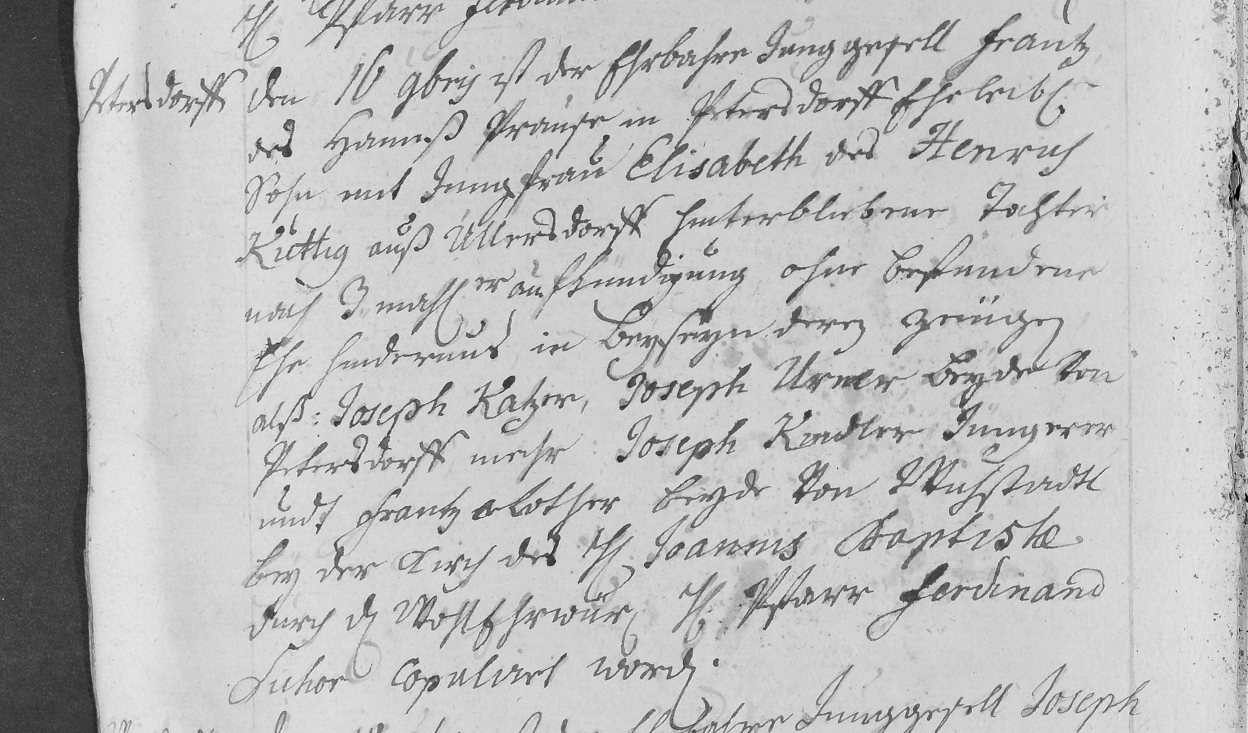 H Pfarr Ferdinand
Petersdorff den 16 9bris ist der Ehrbahre Junggesell Frantz
des Hannß Prause in Petersdorff Eheleibl
Sohn mit Jungfrau Elisabeth des Henrich
Rüttig auß Ullersdorff hinterbliebene Tochter
nach 3 mahl er aufkündigung ohne befundene
Ehe hindernus in beyseyn deren zeügen
alß: Joseph Katzer, Joseph Urner beyde Von
Petersdorff mehr Joseph Kindler Jüngerer
undt Frantz Lother beyde Von
bey der Kirch des H Joannis Baptistæ
durch d WohlEhrwür H. Pfarr Ferdinand
copuliret word.
Junggesell Joseph